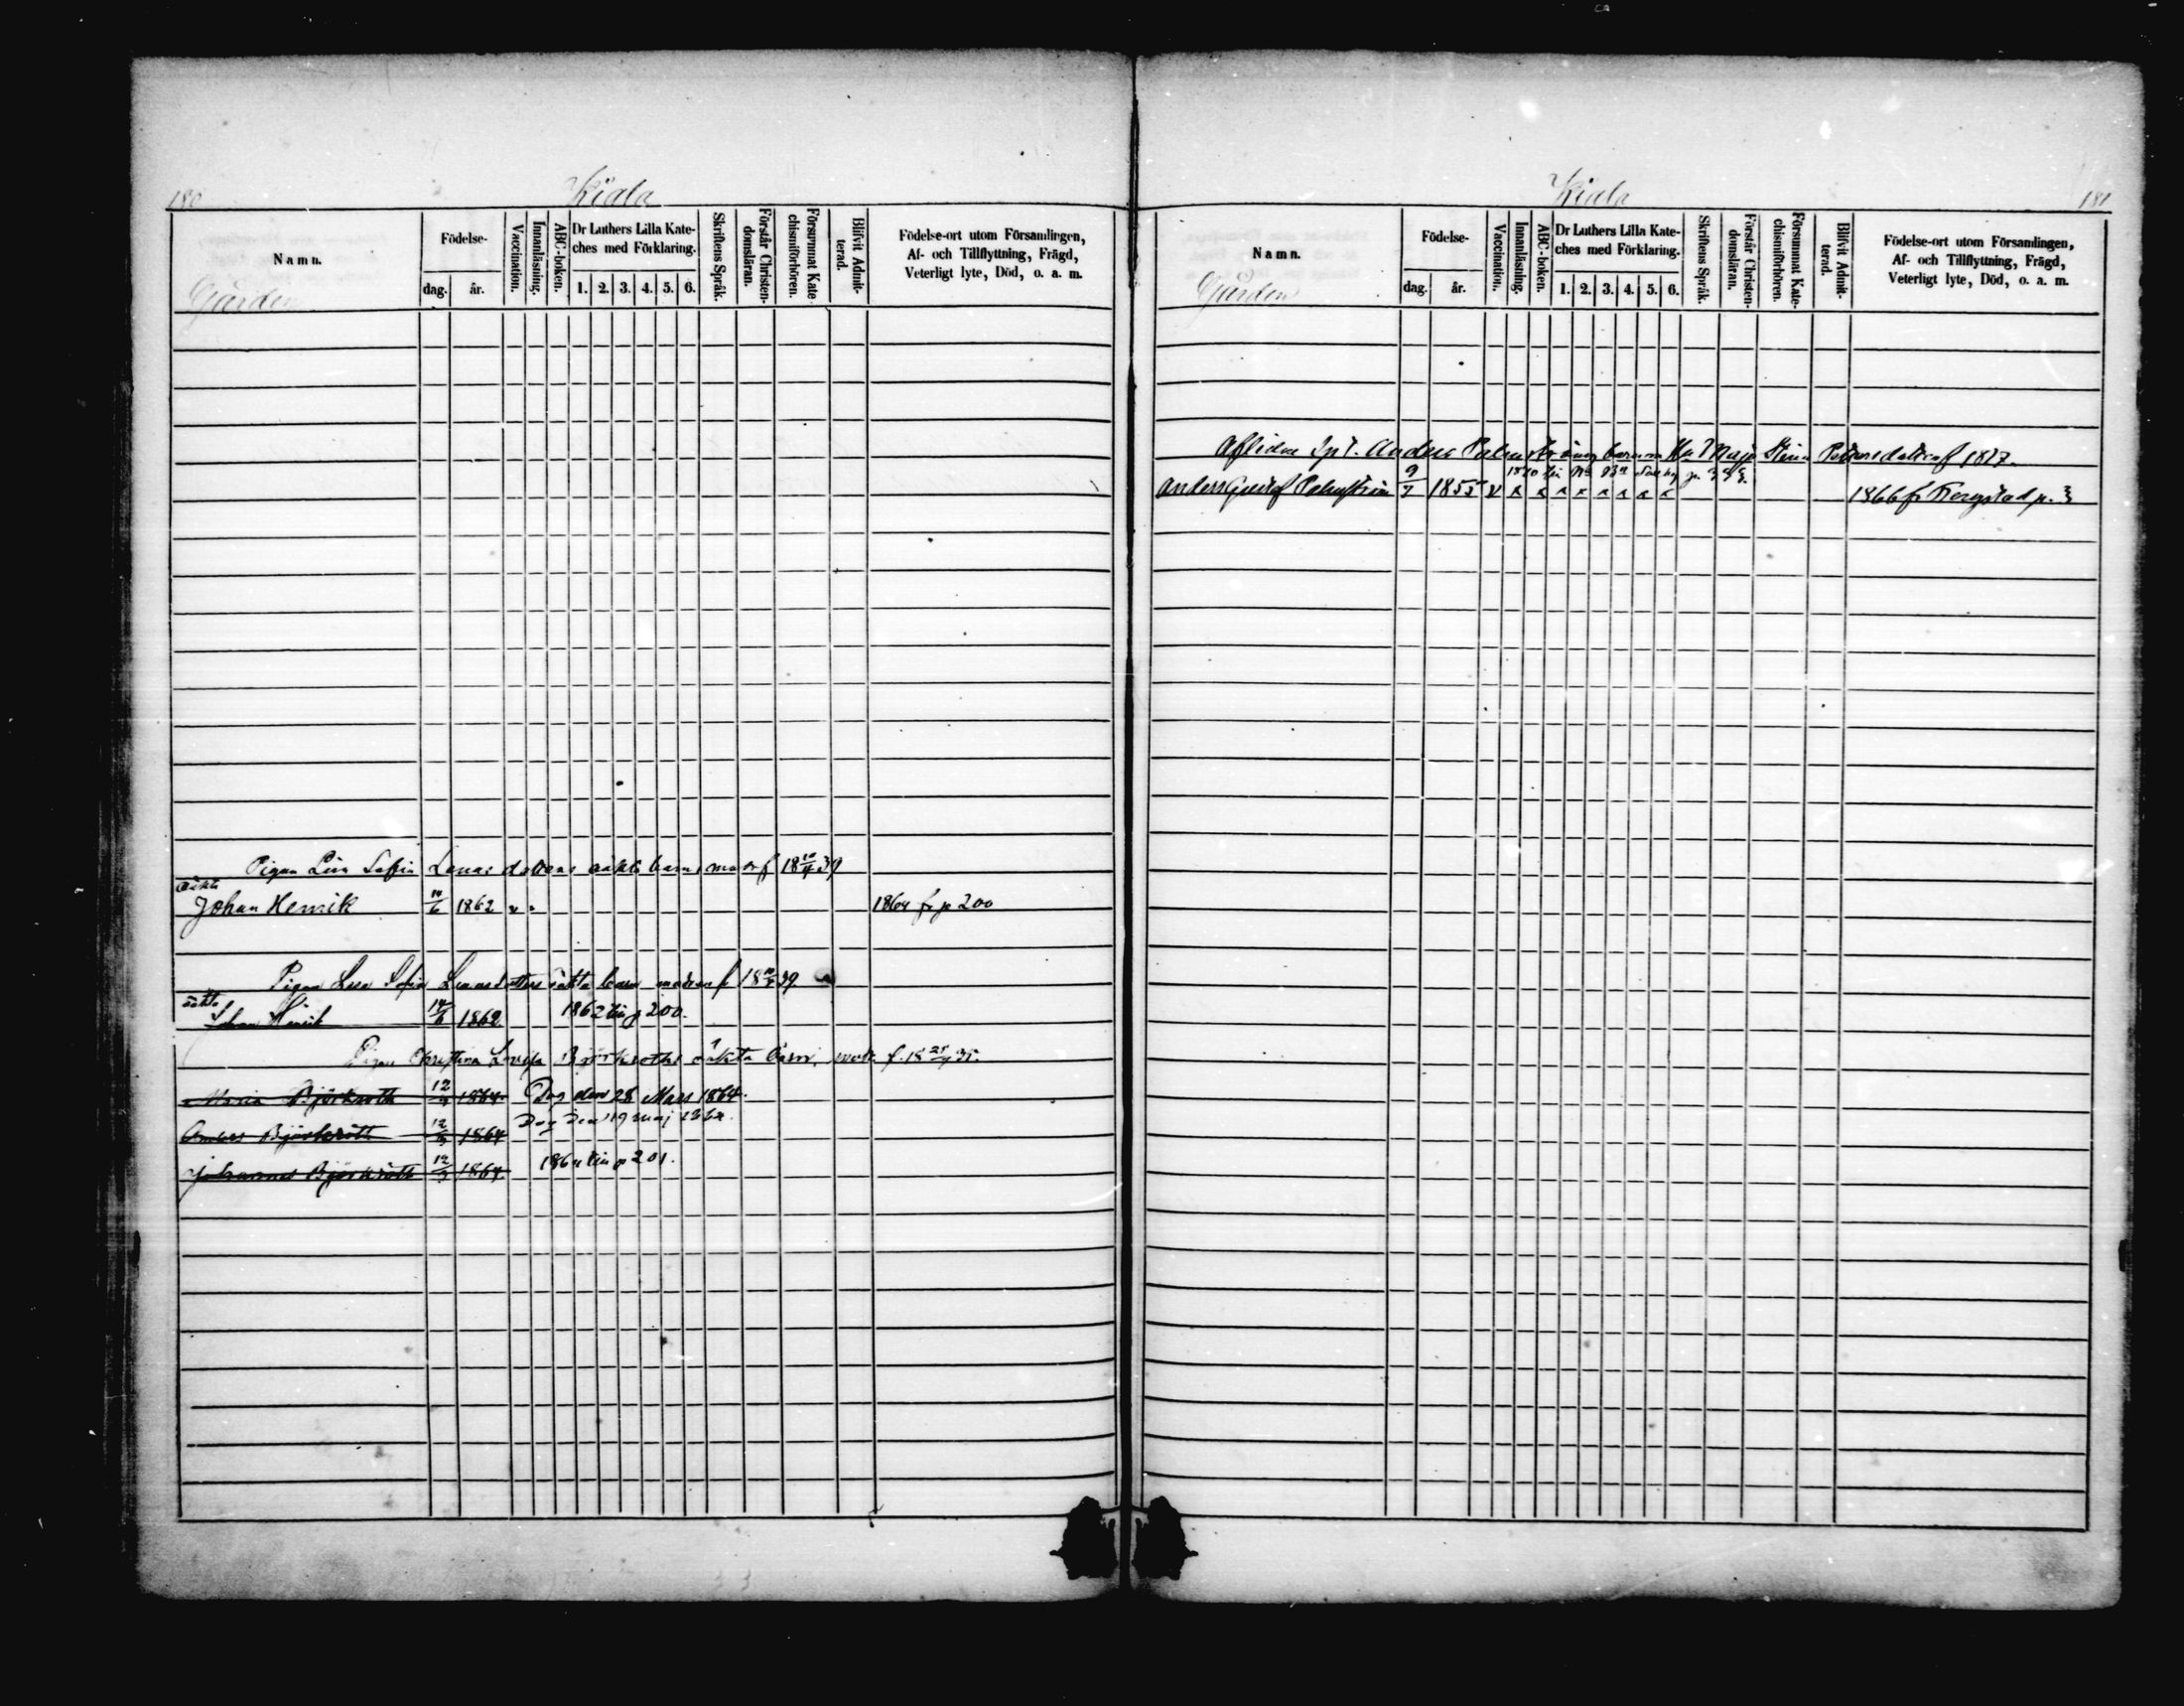 180
Kiala
Namn.
Gården
Födelse-
dag.
år.
Vaccination.
Innanläsning.
ABC-boken.
Dr Luthers Lilla Kate-
ches med Förklaring.
1. 2. 3. 4. 5. 6.
Skriftens Språk.
Förstår Christen-
domsläran.
Försummat Kate-
chismiförhören.
Blifvit Admit-
terad.
Födelse-ort utom Församlingen,
Af- och Tillflyttning, Frägd,
Veterligt lyte, Död, o. a. m.
Pigan Lisa Sofia oäkta barn, modr f 18 39
oäkta
Johan Henrik 14/6 1862 1864 fr p 200
Pigan Lisa Sofia oäkta barn modren f 18 39
oäkta
Johan Henrik 14/6 1862 1862 till p 200.
Pigan Christina Lovisa Björkroths oäkta barn, f. 18 35.
Maria Björkroth 12/3 1864 Dog den 28 Mars 1864.
Björkroth 12/3 1864 Dog den 19 maj 1864.
Johannes Björkroth 12/3 1864 till p 201.
Kiala
181
Namn.
Gården
Födelse-
dag.
år.
Vaccination.
Innanläsning.
ABC-boken.
Dr Luthers Lilla Kate-
ches med Förklaring.
1. 2. 3. 4. 5. 6.
Skriftens Språk.
Förstår Christen-
domsläran.
Försummat Kate-
chismiförhören.
Blifvit Admit-
terad.
Födelse-ort utom Församlingen,
Af- och Tillflyttning, Frägd,
Veterligt lyte, Död, o. a. m.
Aflidne Anders Palmströms barn m Maja Stina f 1817.
1870
Anders Gustaf Palmström 9/7 1855 v 1866 fr p. 3